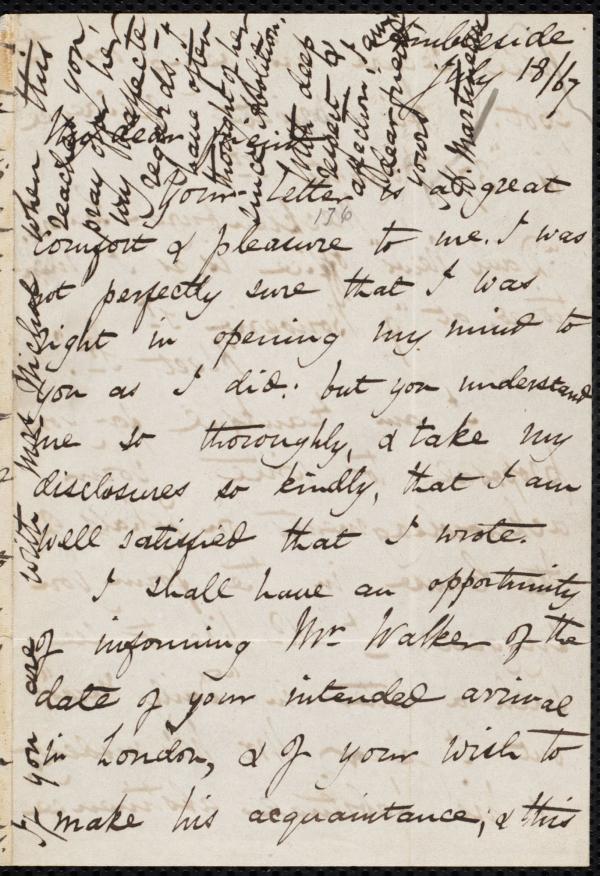 Ambleside
July 18/67
My dear friend
Your letter is a great
136
comfort & pleasure to me. I was
not perfectly sure that I was
right in opening my mind to
you as I did: but you understand
me so thoroughly, & take my
disclosures so kindly, that I am
well satisfied that I wrote.
I shall have an opportunity
of informing Mr. Walker of the
date of your intended arrival
in London, & of your wish to
make his acquaintance; & this
If you are with Mrs Michael when this
reaches you,
pray offer her
my respecte-
regards. I
have often
thought of her
since Abolition.
With deep
respect &
affection, I am
dear friend
yours
H. Martineau